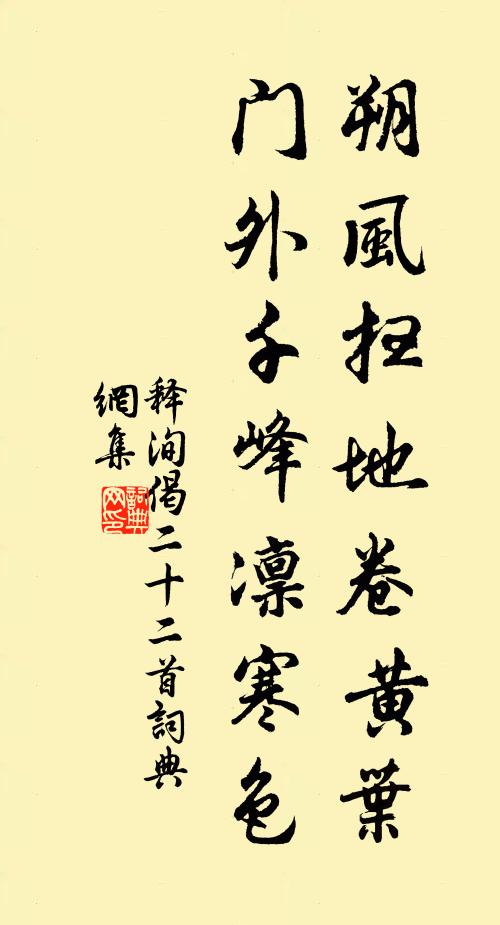 朔風扫地卷黄葉
门外千峰凛寒色
释洵偈二十二首詞典
網集
詞典网印